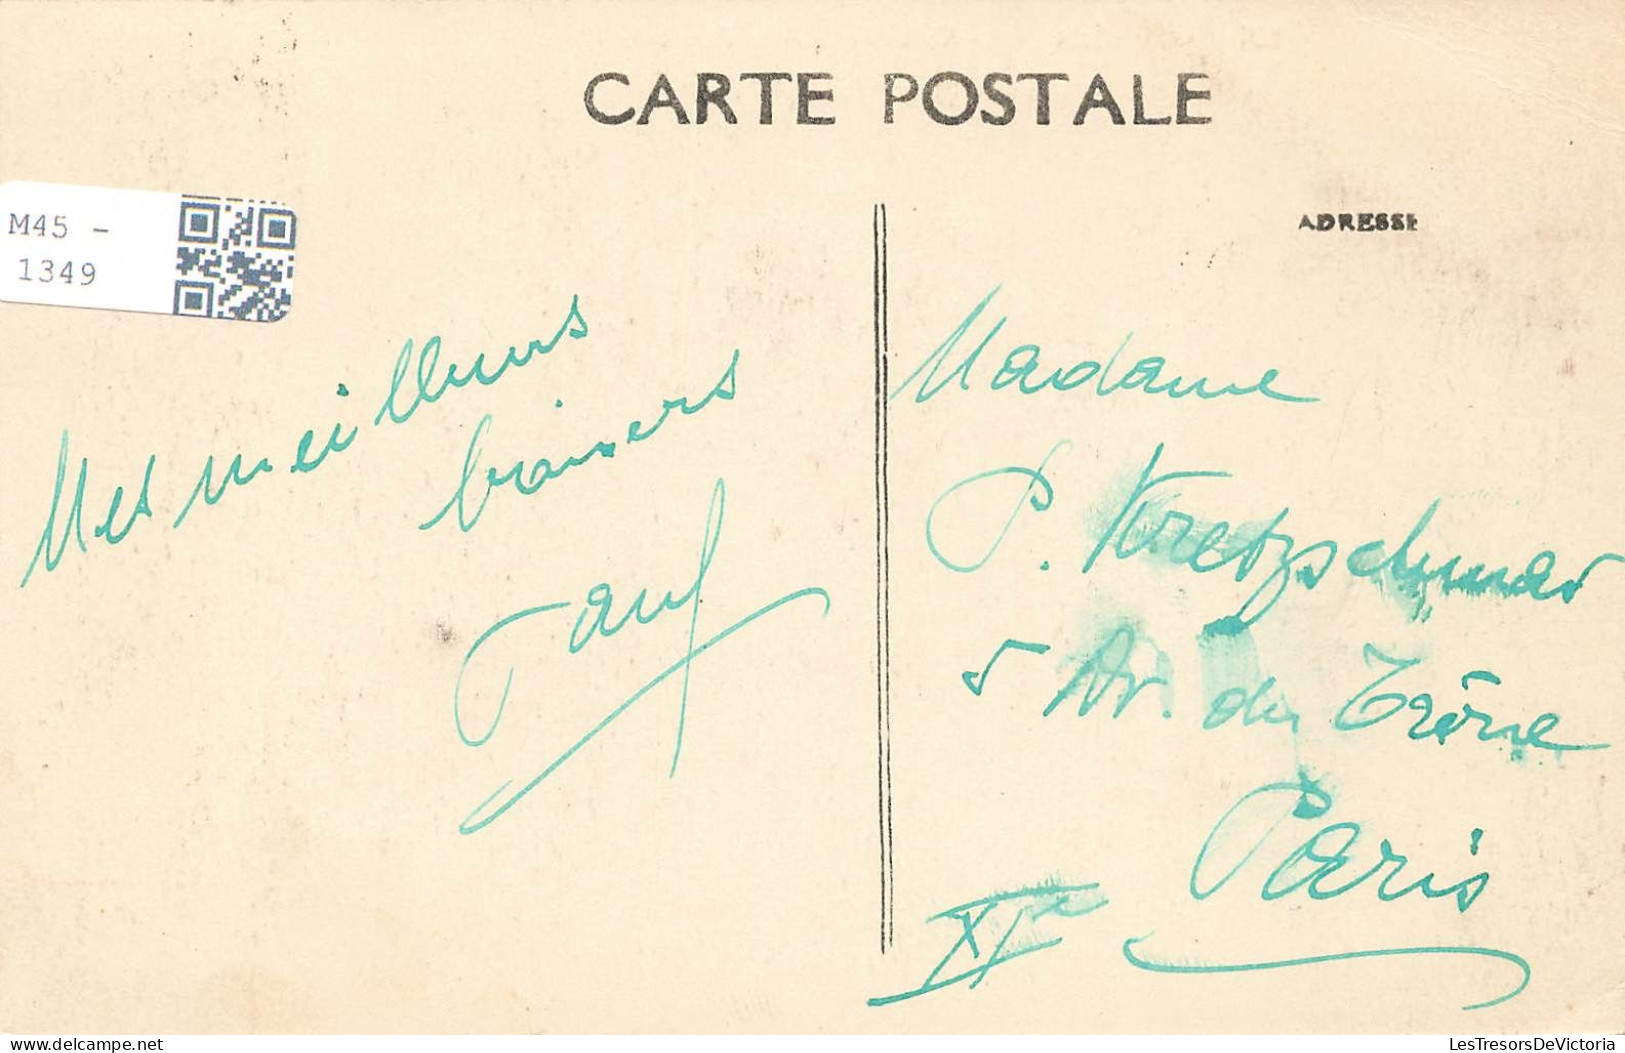 CARTE POSTALE
M45 -
1349
ADRESSE
Mes meilleurs
baisers
Madame
P. Kretzschmar
5 Av. du Trône
Paris
XIe
delcampe.net
LesTresorsDeVictoria